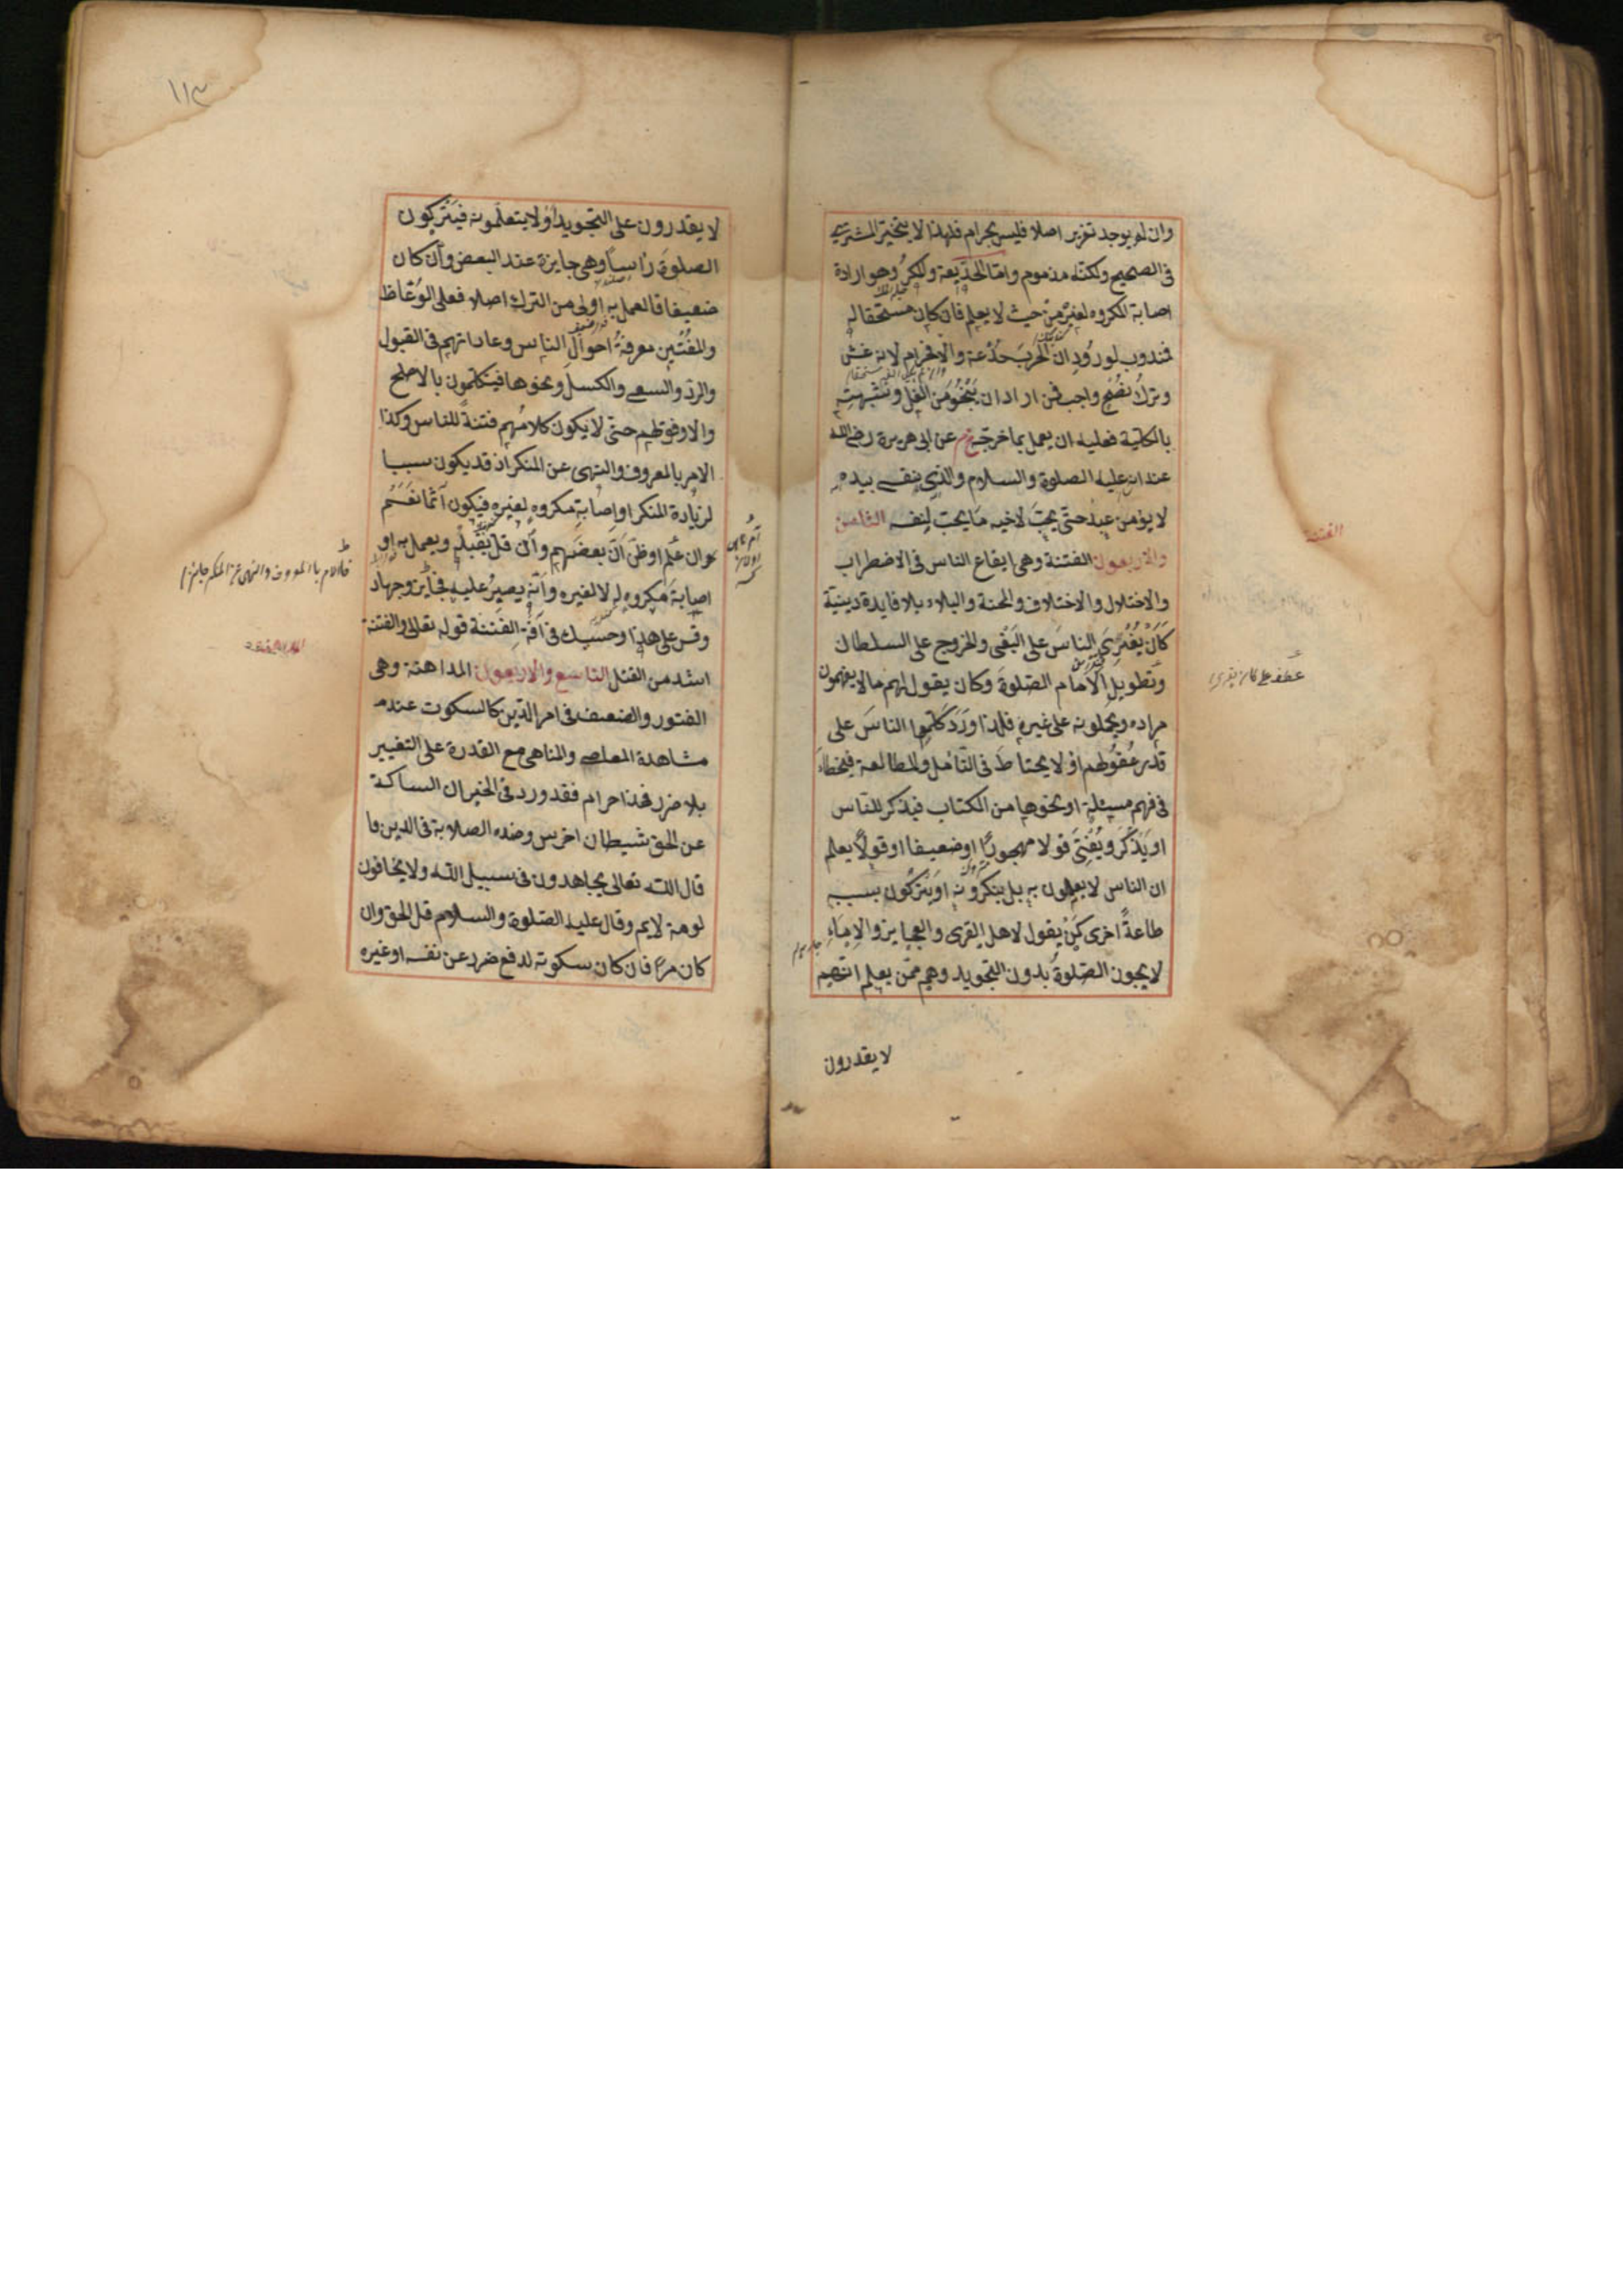 وان لم يوجد تغرير اصلا فليس بحرام فلهذا لا يتخير المشترى
فى الصحيح ولكنه مذموم واما الخديعة والمكر وهو ارادة
اصابة المكروه لغيره من حيث لا يعلم فان كان مستحقا له
فمندوب لورود ان الحرب خدعة والا فحرام لانه غش
وترك نصح واجب فمن اراد ان ينجو من الغل وتشبهته
بالكلية فعليه ان يعمل بما خرجه خ م عن ابى هريرة رضى الله
عنه انه عليه الصلوة والسلام والذى نفسى بيده
لا يؤمن عبد حتى يحب لاخيه ما يحب لنفسه الثامن
والاربعون الفتنة وهى ايقاع الناس فى الاضطراب
والاختلال والاختلاف والمحنة والبلاء بلا فايدة دينية
كان يغرى الناس على البغى والخروج على السلطان
وتطويل الامام الصلوة وكان يقول لهم ما لا يفهمون
مراده ويحملونه على غيره فلذا ورد كلموا الناس على
قدر عقولهم او لا يحتاط فى التأمل والمطالعة فيخطأ
فى فهم مسئلة او نحوها من الكتاب فيذكر للناس
او يذكر ويفتى قولا مهجورا او ضعيفا او قولا يعلم
ان الناس لا يعملون به بل ينكرونه او يتركون بسببه
طاعة اخرى كمن يقول لاهل القرى والعجايز والاماء
لا يجون الصلوة بدون التجويد وهم ممن يعلم انهم
لا يقدرون
الفتنة
عطف على كان يغرى
١١٣
لا يقدرون على التجويد او لا يتعلمونه فيتركون
الصلوة راسا وهى جايزة عند البعض وان كان
ضعيفا فالعمل به اولى من الترك اصلا فعلى الوعاظ
والمفتين معرفة احوال الناس وعاداتهم فى القبول
والرد والسعى والكسل ونحوها فيتكلمون بالاصلح
والاوفق لهم حتى لا يكون كلامهم فتنة للناس وكذا
الامر بالمعروف والنهى عن المنكر اذ قد يكون سببا
لزيادة المنكر او اصابة مكروه لغيره فيكون آثما نعم
وان علم او ظن ان بعضهم وان قل يقبله ويعمل به او
اصابة مكروه له لا لغيره وانه يصبر عليه فجائز وجهاد
وقس على هذا وحسبك فى آفة الفتنة قوله تعالى والفتنة
اشد من القتل التاسع والاربعون المداهنة وهى
الفتور والضعف فى امر الدين كالسكوت عند
مشاهدة المعاصى والمناهى مع القدرة على التغيير
بلا ضرر فهذا حرام فقد ورد فى الخبر ان الساكت
عن الحق شيطان اخرس وضده الصلابة فى الدين وا
قال الله تعالى يجاهدون فى سبيل الله ولا يخافون
لومة لايم وقال عليه الصلوة والسلام قل الحق وان
كان مرا فان كان سكوته لدفع ضرر عن نفسه او غيره